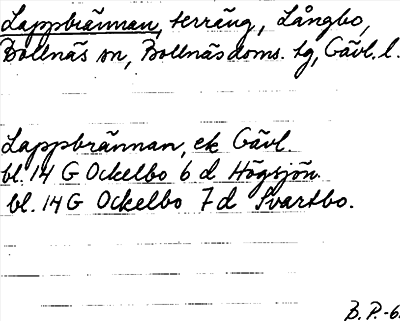 Lappbrännan, terräng, Långbo,
Bollnäs sn, Bollnäs doms. tg, Gävl. l.
Lappbrännan, ek Gävl.
bl. 14 G Ockelbo 6 d Högsjön.
bl. 14 G Ockelbo 7 d Svartbo.
B. P.-6